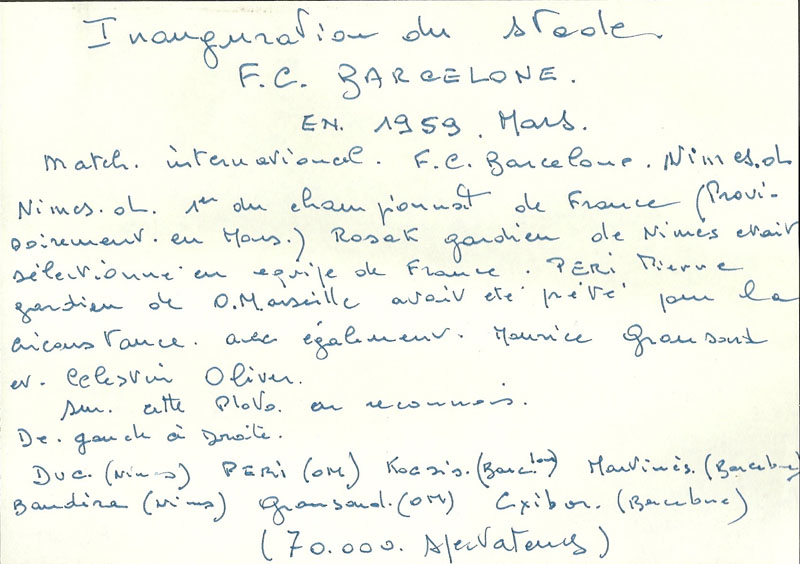 Inauguration du stade
F.C. BARCELONE.
EN. 1959. Mars.
Match. international. F.C. Barcelone. Nimes.ol
Nimes.ol. 1er du championnat de France (Provi-
soirement. en Mars.) Rosak gardien de Nimes etait
sélectionné en equipe de France. PERI Pierre
gardien de O.Marseille avait été prété pour la
circonstance. avec également. Maurice Gransart
et. Celestin Oliver.
Sur. cette Photo. on reconnais.
De. gauche à Droite.
Duc. (Nimes) PERI (OM) Kocsis. (Barcelone) Martinès. (Barcelone)
Bandera (Nimes) Gransard. (OM) Czibor. (Barcelone)
(70.000. spectateurs)